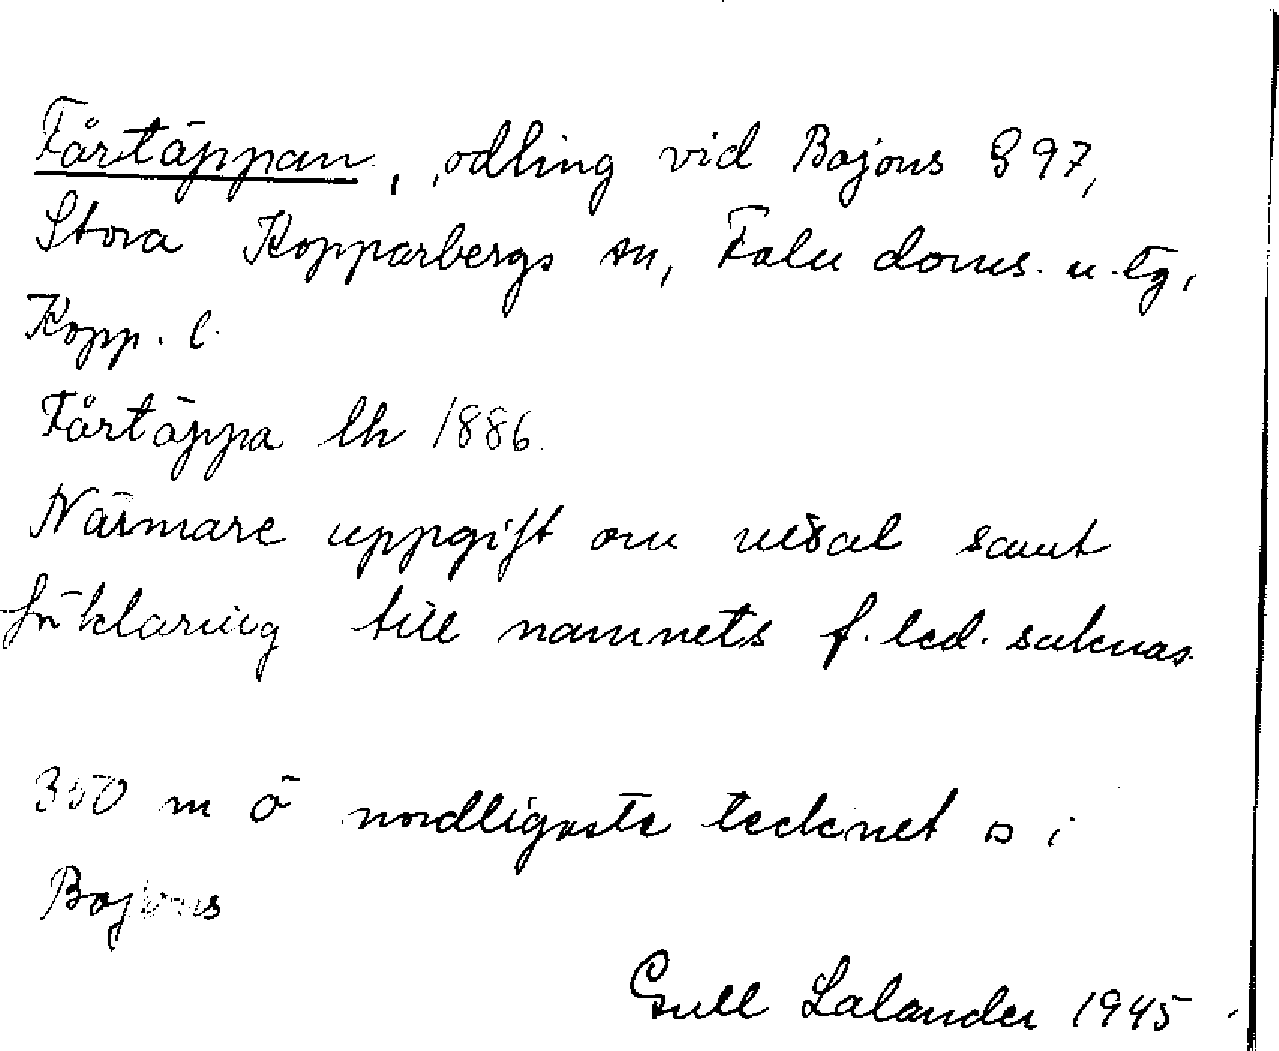 Fårtäppan, odling vid Bojons § 97,
Stora Kopparbergs sn, Falu doms. n. tg,
Kopp. l.
Fårtäppa lh 1886.
Närmare uppgift om uttal samt
förklaring till namnets f. led. saknas.
350 m ö nordligaste tecknet □ i
Bojons
Gull Lalander 1945